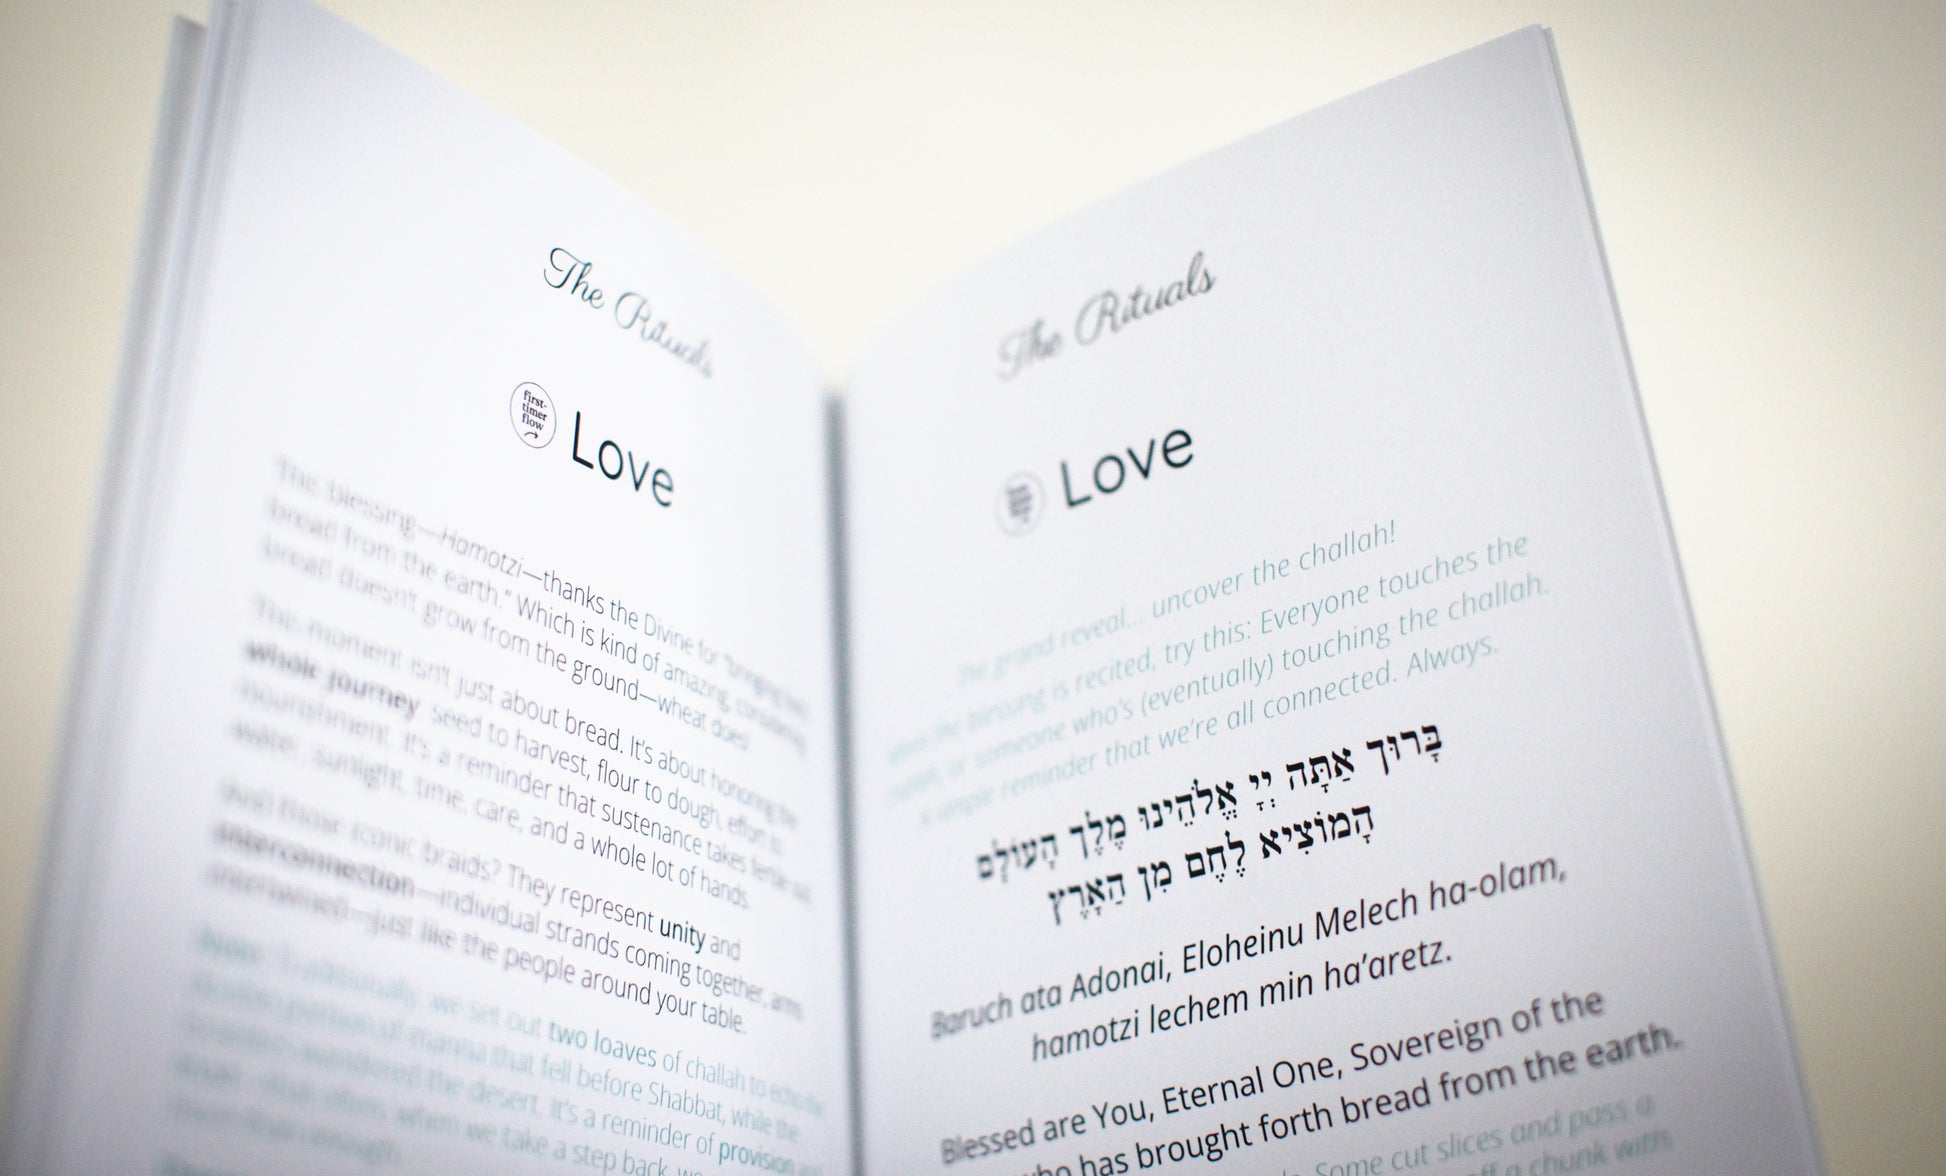 The Rituals
first-
timer
flow
Love
This blessing—Hamotzi—thanks the Divine for "bringing
bread from the earth." Which is kind of amazing, considering
bread doesn't grow from the ground—wheat does!
This moment isn't just about bread. It's about honoring the
whole journey: seed to harvest, flour to dough, effort to
nourishment. It's a reminder that sustenance takes fertile soil,
water, sunlight, time, care, and a whole lot of hands.
And those iconic braids? They represent unity and
interconnection—individual strands coming together, arms
intertwined—just like the people around your table.
Traditionally, we set out two loaves of challah to echo the
double portion of manna that fell before Shabbat, while the
wandered the desert. It's a reminder of provision
when we take a step back, we
The Rituals
Love
The grand reveal... uncover the challah!
When the blessing is recited, try this: Everyone touches the
challah, or someone who's (eventually) touching the challah.
A simple reminder that we're all connected. Always.
בָּרוּךְ אַתָּה יְיָ אֱלֹהֵינוּ מֶלֶךְ הָעוֹלָם
הַמּוֹצִיא לֶחֶם מִן הָאָרֶץ
Baruch ata Adonai, Eloheinu Melech ha-olam,
hamotzi lechem min ha'aretz.
Blessed are You, Eternal One, Sovereign of the
who has brought forth bread from the earth.
Some cut slices and pass a
off a chunk with